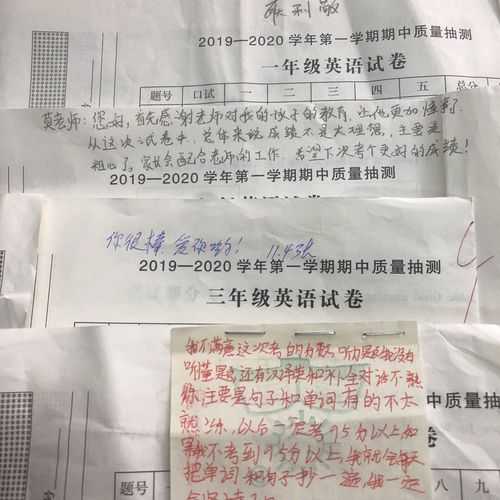 耿利敏
2019—2020 学年第一学期期中质量抽测
一年级英语试卷
题号 口试 一 二 三 四 五 总分
莫老师：您好，首先感谢老师对我的孩子的教育，让他更加懂事了
从这次试卷来，总体来说成绩不是太理想，主要是
粗心了，家长会配合老师的工作，希望下次考个更好的成绩！
2019—2020 学年第一学期期中质量抽测
你很棒，
2019—2020 学年第一学期期中质量抽测
三年级英语试卷
我不满意这次考的分数，听力题我没有
听懂题，还有汉译英和补全对话不熟
练，主要是句子和单词有的不太
熟练，以后一定考95分以上，如
果我不考到95分以上，我就会每天
把单词和句子抄一遍，
中质量抽测
八 九